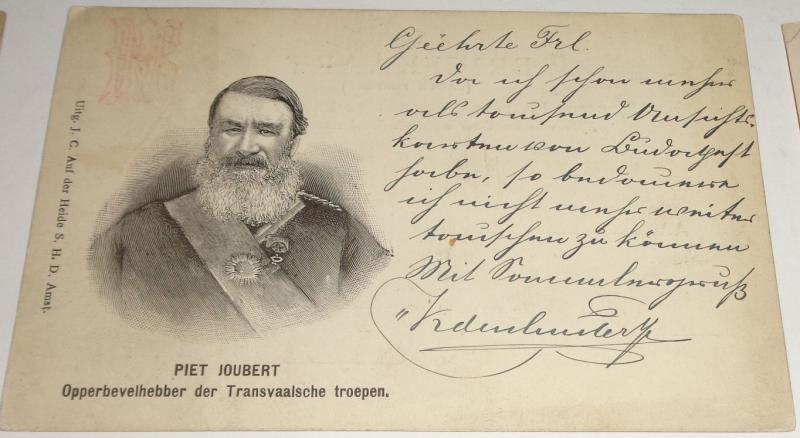 Geehrte Frl.
Da ich schon mehr
als tausend Ansichts-
karten von Budapest
habe, so bedauere
ich nicht mehr weiter
tauschen zu können
Mit Sammlergruß
Uitg. J. C. Auf der Heide S. H. D. Amst.
PIET JOUBERT
Opperbevelhebber der Transvaalsche troepen.